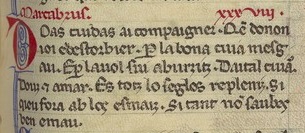 Marcabrus. xxxviii.
Doas cuidas ai compaignier. Qem donon
ioi e destorbier. P la bona cuia mesg
au. Ep lauol sui aburitz. Dautal cuiam
Doni z amar. Es totz lo segles repleni. Si
queu fora ab los esmaiz. Si tant no saubes
ben e mau.